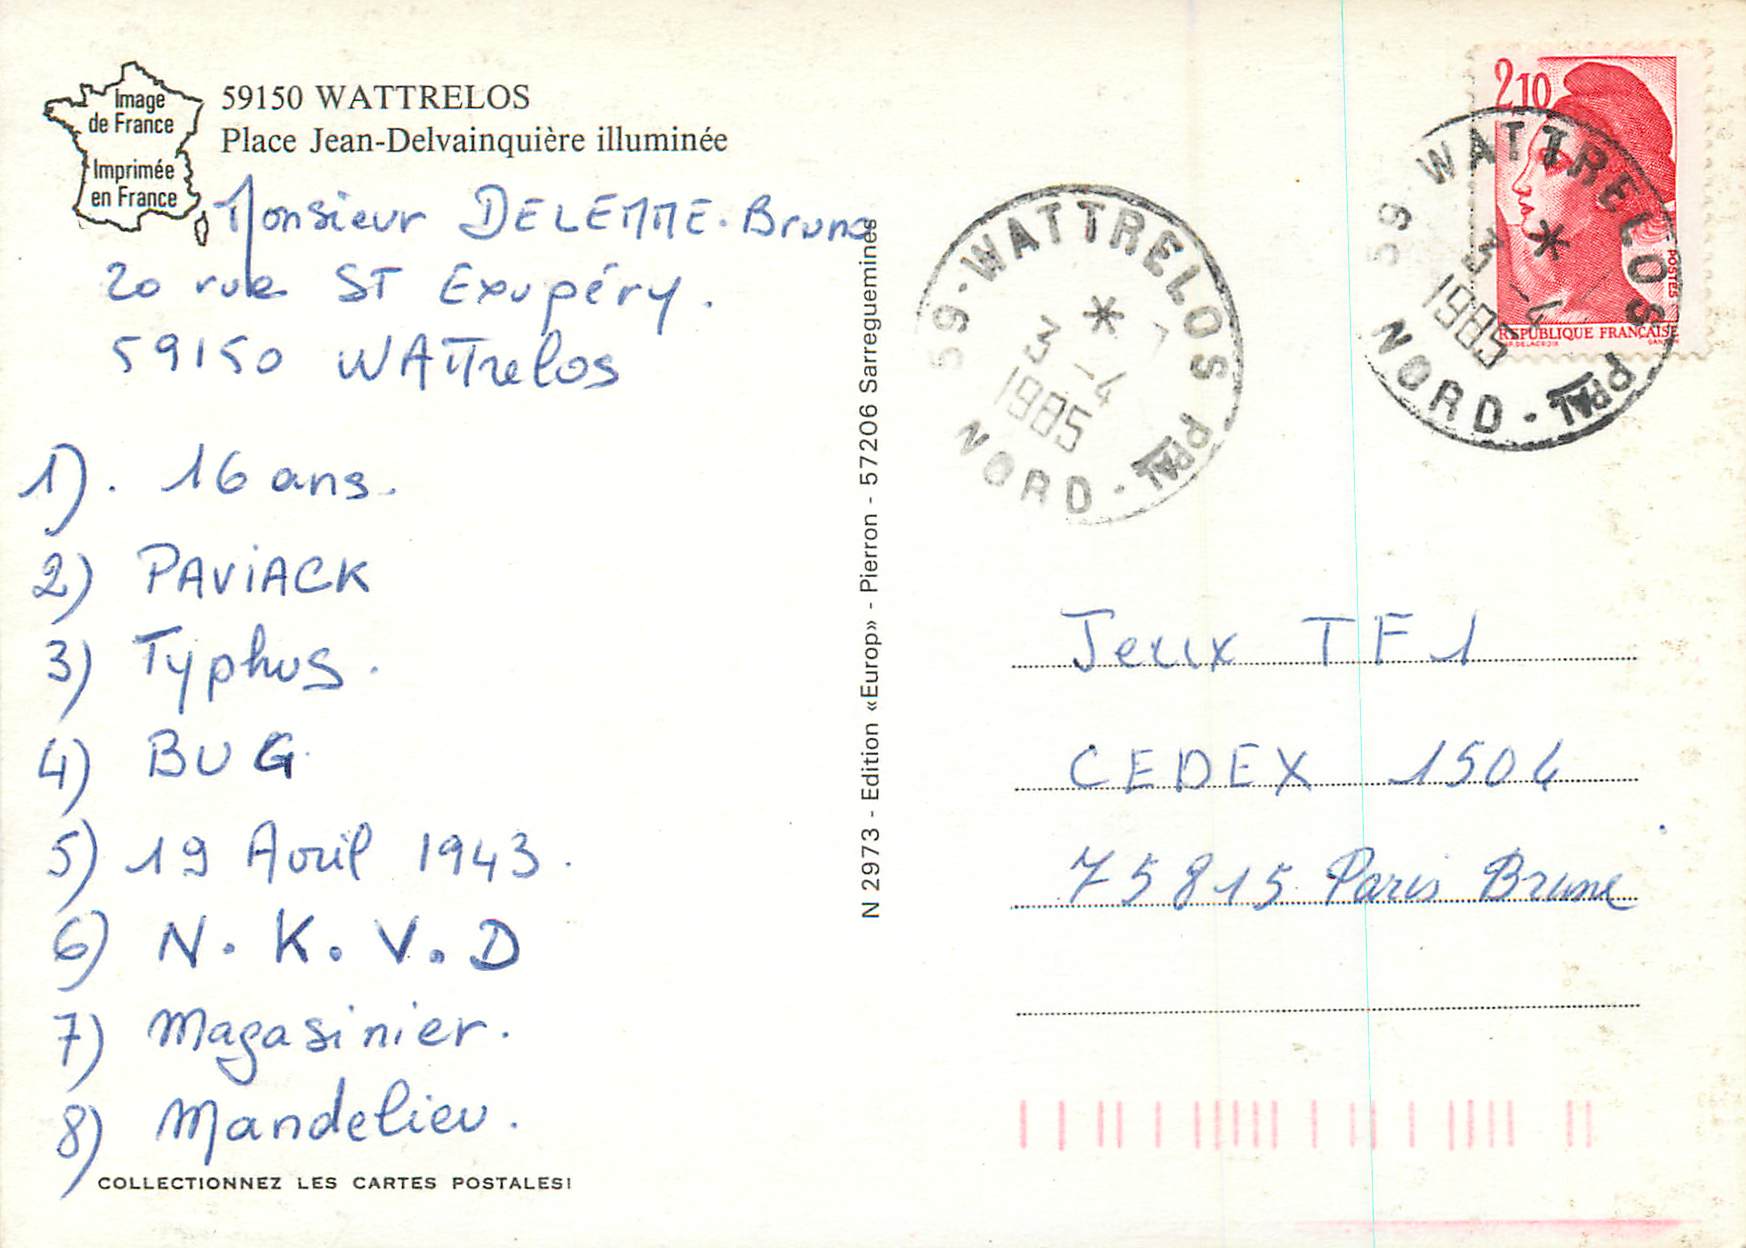 Image
de France
Imprimée
en France
59150 WATTRELOS
Place Jean-Delvainquière illuminée
Monsieur DELEMME. Bruno
20 rue ST Exupéry.
59150 WATTrelos
1). 16 ans.
2) PAViACK
3) Typhus.
4) BUG.
5) 19 Avril 1943.
6) N. K. V. D
7) Magasinier.
8) Mandelieu.
COLLECTIONNEZ LES CARTES POSTALES!
N 2973 - Edition «Europ» - Pierron - 57206 Sarreguemines
59-WATTRELOS PPAL
*
3 -4
1985
NORD-
2,10
POSTES
RÉPUBLIQUE FRANÇAISE
59 WATTRELOS PPAL
*
3 -4
1985
NORD-
Jeux TF1
CEDEX 1504
75815 Paris Brune